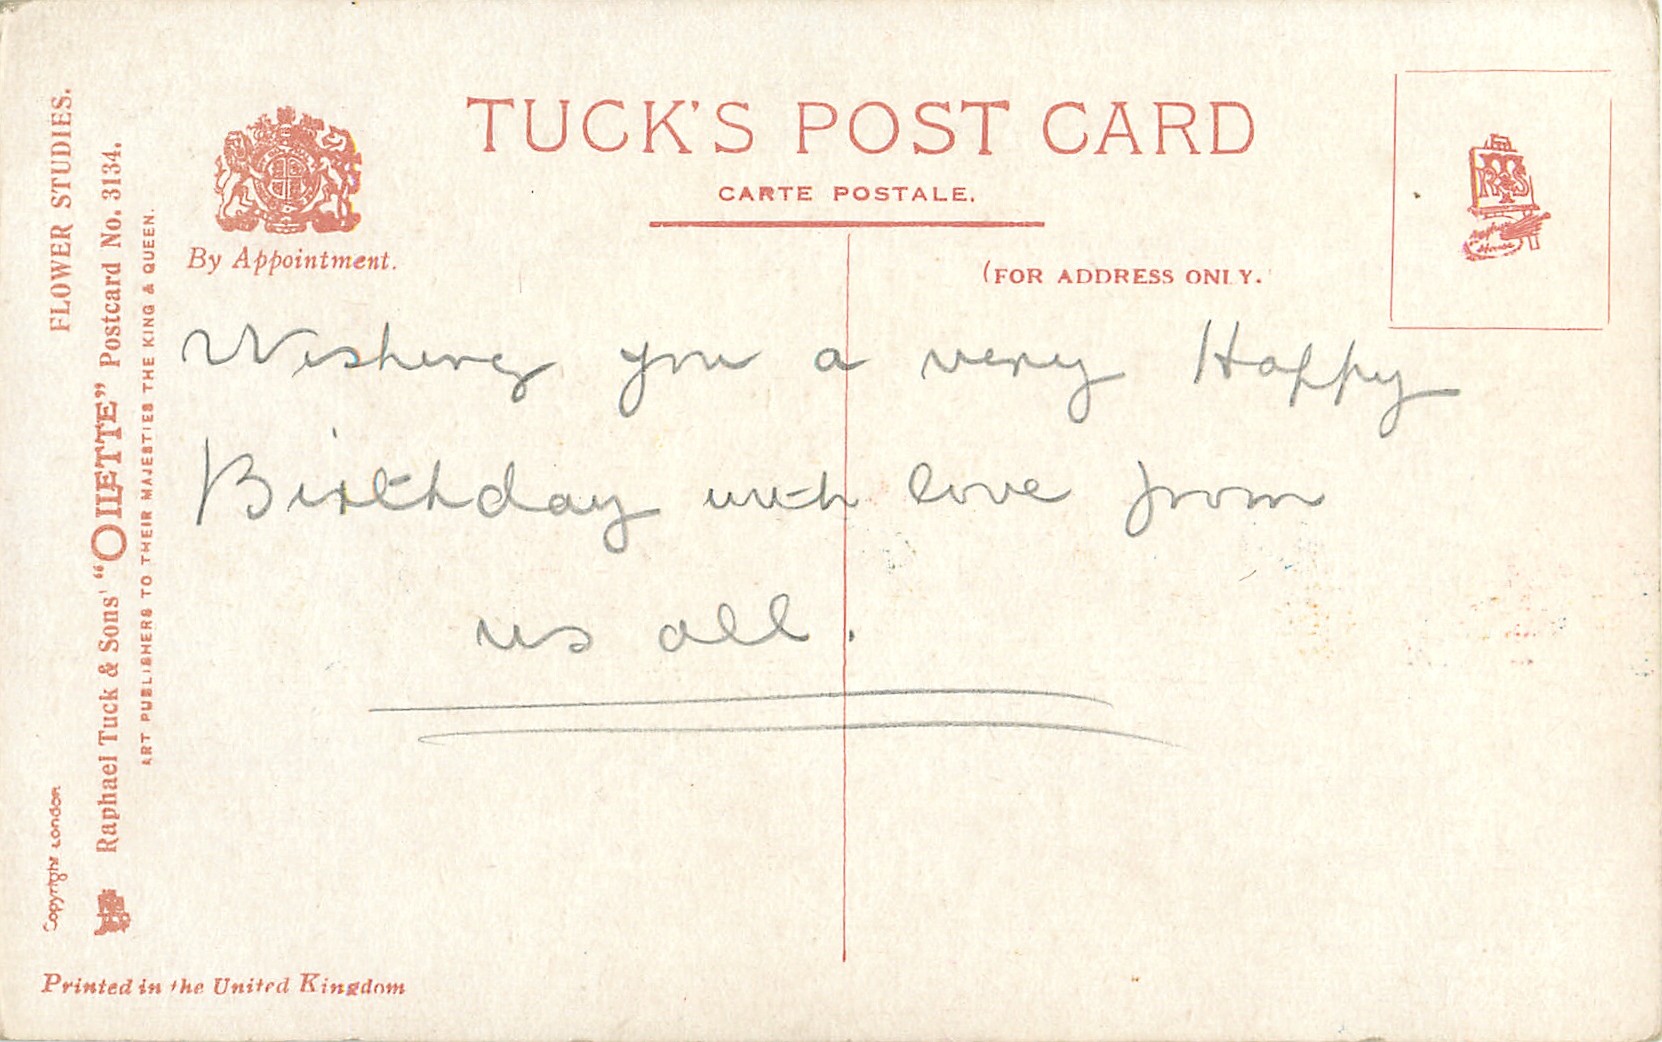 TUCK'S POST CARD
CARTE POSTALE.
By Appointment.
(FOR ADDRESS ONLY.
FLOWER STUDIES.
Raphael Tuck & Sons' "OILETTE" Postcard No. 3134.
ART PUBLISHERS TO THEIR MAJESTIES THE KING & QUEEN.
Copyright London
Wishing you a very Happy
Birthday with love from
us all.
Printed in the United Kingdom